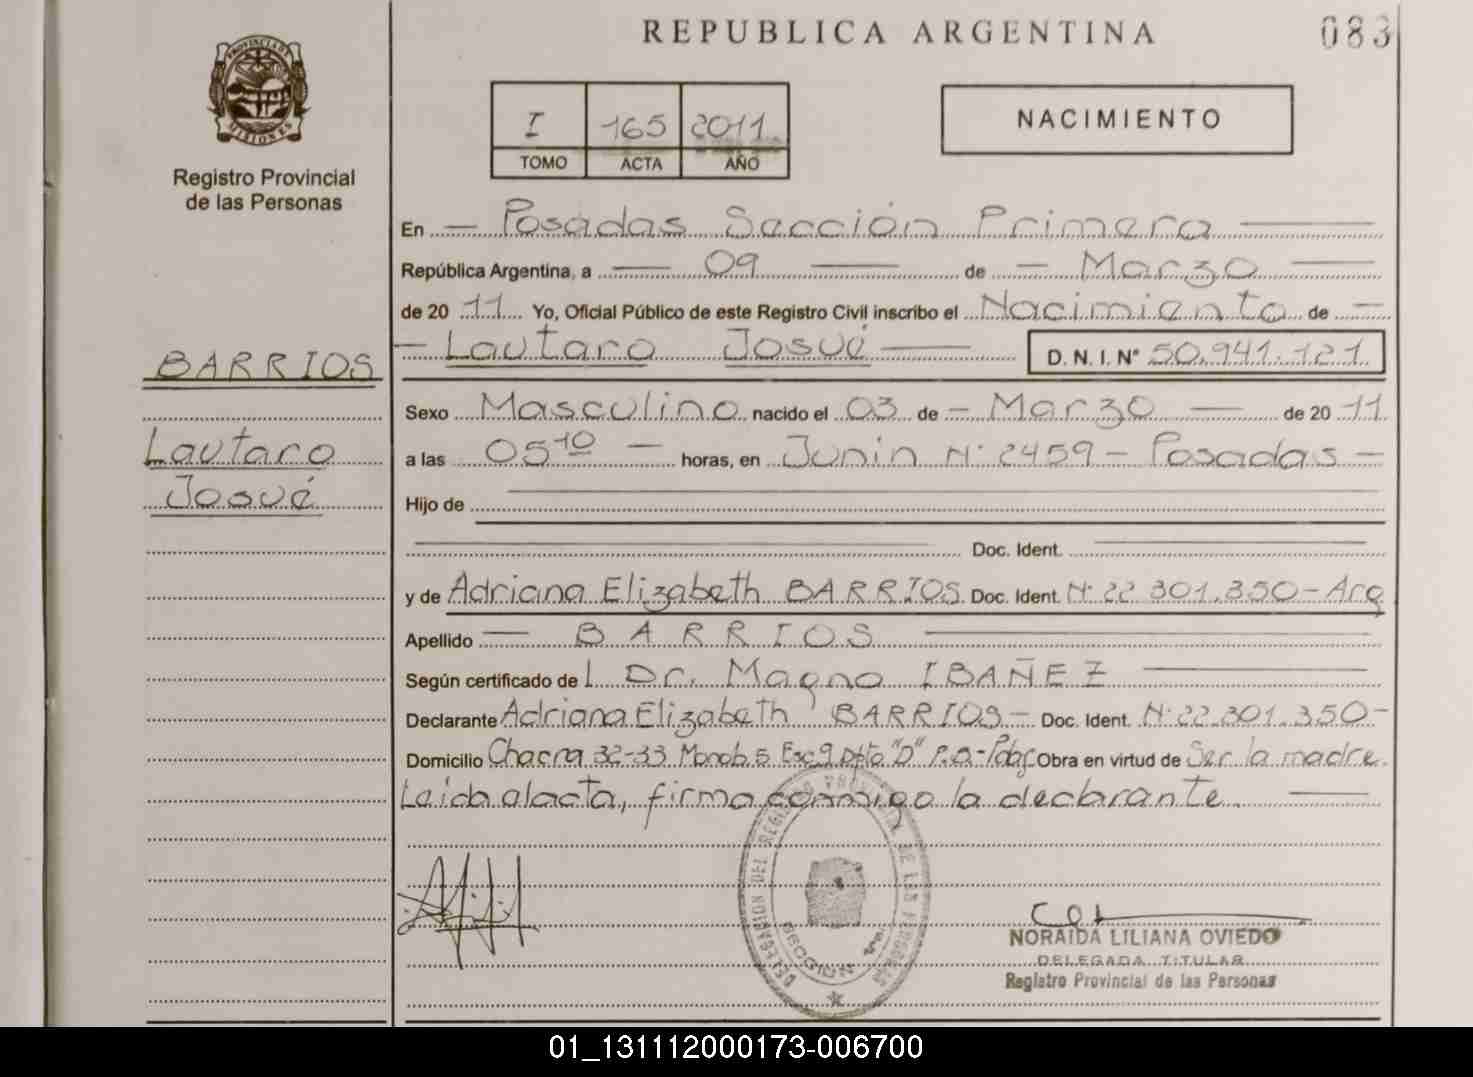 REPUBLICA ARGENTINA
083
PROVINCIA DE MISIONES
Registro Provincial
de las Personas
I 165 2011
TOMO ACTA AÑO
NACIMIENTO
En Posadas Sección Primera
República Argentina, a 09 de Marzo
de 20 11 Yo, Oficial Público de este Registro Civil inscribo el Nacimiento de
Lautaro Josué D. N. I. N° 50.941.121
BARRIOS
Lautaro
Josué
Sexo Masculino nacido el 03 de Marzo de 20 11
a las 05 10 horas, en Junin N° 2459 - Posadas
Hijo de
Doc. Ident.
y de Adriana Elizabeth BARRIOS Doc. Ident. N° 22.301.350 - Arg
Apellido BARRIOS
Según certificado de l Dr. Magno IBAÑEZ
Declarante Adriana Elizabeth BARRIOS - Doc. Ident. N° 22.301.350 -
Domicilio Chacra 32-33 Monob. 5 Esc. 9 Dpto "D" Obra en virtud de Ser la madre.
Leida el acta, firma conmigo la declarante.
DELEGACION DEL REGISTRO PROVINCIAL DE LAS PERSONAS
SECCION 1ra.
NORAIDA LILIANA OVIEDO
DELEGADA TITULAR
Registro Provincial de las Personas
01_131112000173-006700